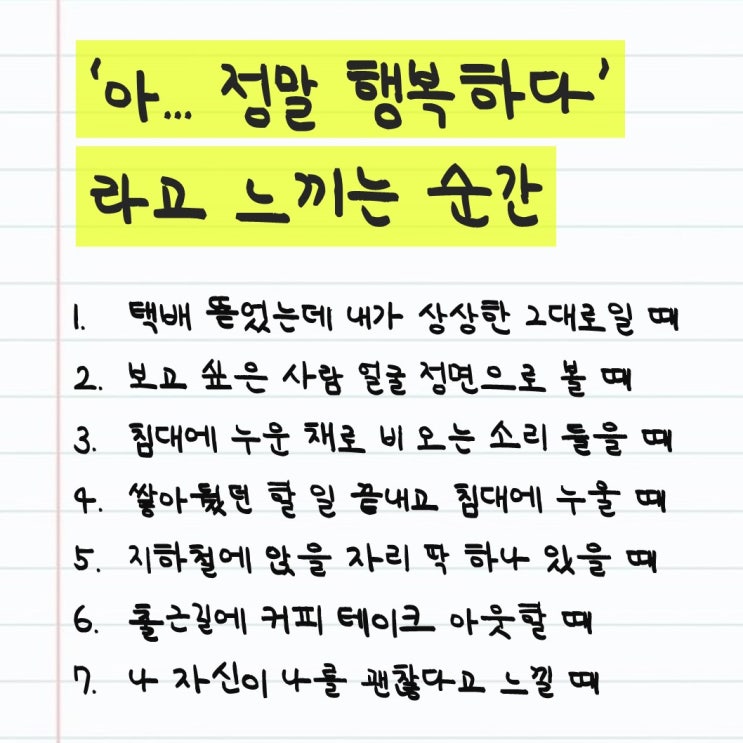 '아... 정말 행복하다'
라고 느끼는 순간
1. 택배 뜯었는데 내가 상상한 그대로일 때
2. 보고 싶은 사람 얼굴 정면으로 볼 때
3. 침대에 누운 채로 비 오는 소리 들을 때
4. 쌓아뒀던 할 일 끝내고 침대에 누울 때
5. 지하철에 앉을 자리 딱 하나 있을 때
6. 출근길에 커피 테이크 아웃할 때
7. 나 자신이 나를 괜찮다고 느낄 때